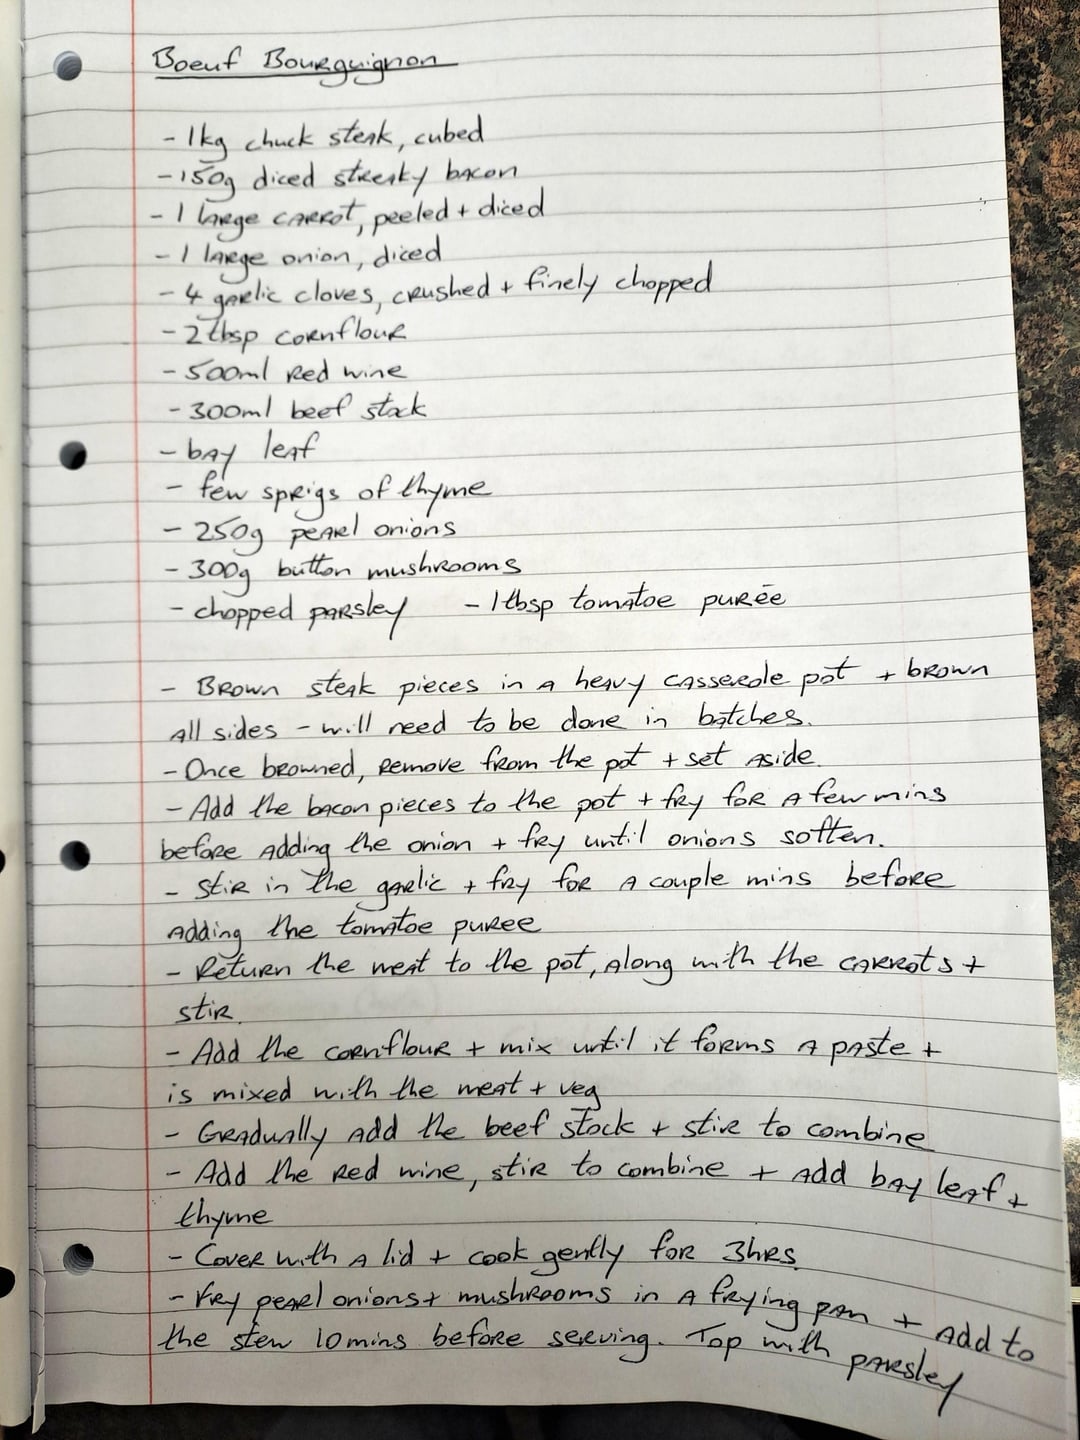 Boeuf Bourguignon
- 1kg chuck steak, cubed
- 150g diced streaky bacon
- 1 large carrot, peeled + diced
- 1 large onion, diced
- 4 garlic cloves, crushed + finely chopped
- 2tbsp cornflour
- 500ml red wine
- 300ml beef stock
- bay leaf
- few sprigs of thyme
- 250g pearl onions
- 300g button mushrooms
- chopped parsley - 1tbsp tomatoe purée
- Brown steak pieces in a heavy casserole pot + brown
all sides - will need to be done in batches.
- Once browned, remove from the pot + set aside.
- Add the bacon pieces to the pot + fry for a few mins
before adding the onion + fry until onions soften.
- Stir in the garlic + fry for a couple mins before
adding the tomatoe puree
- Return the meat to the pot, along with the carrots +
stir.
- Add the cornflour + mix until it forms a paste +
is mixed with the meat + veg
- Gradually add the beef stock + stir to combine
- Add the red wine, stir to combine + add bay leaf +
thyme
- Cover with a lid + cook gently for 3hrs.
- Fry pearl onions + mushrooms in a frying pan + add to
the stew 10mins before serving. Top with parsley